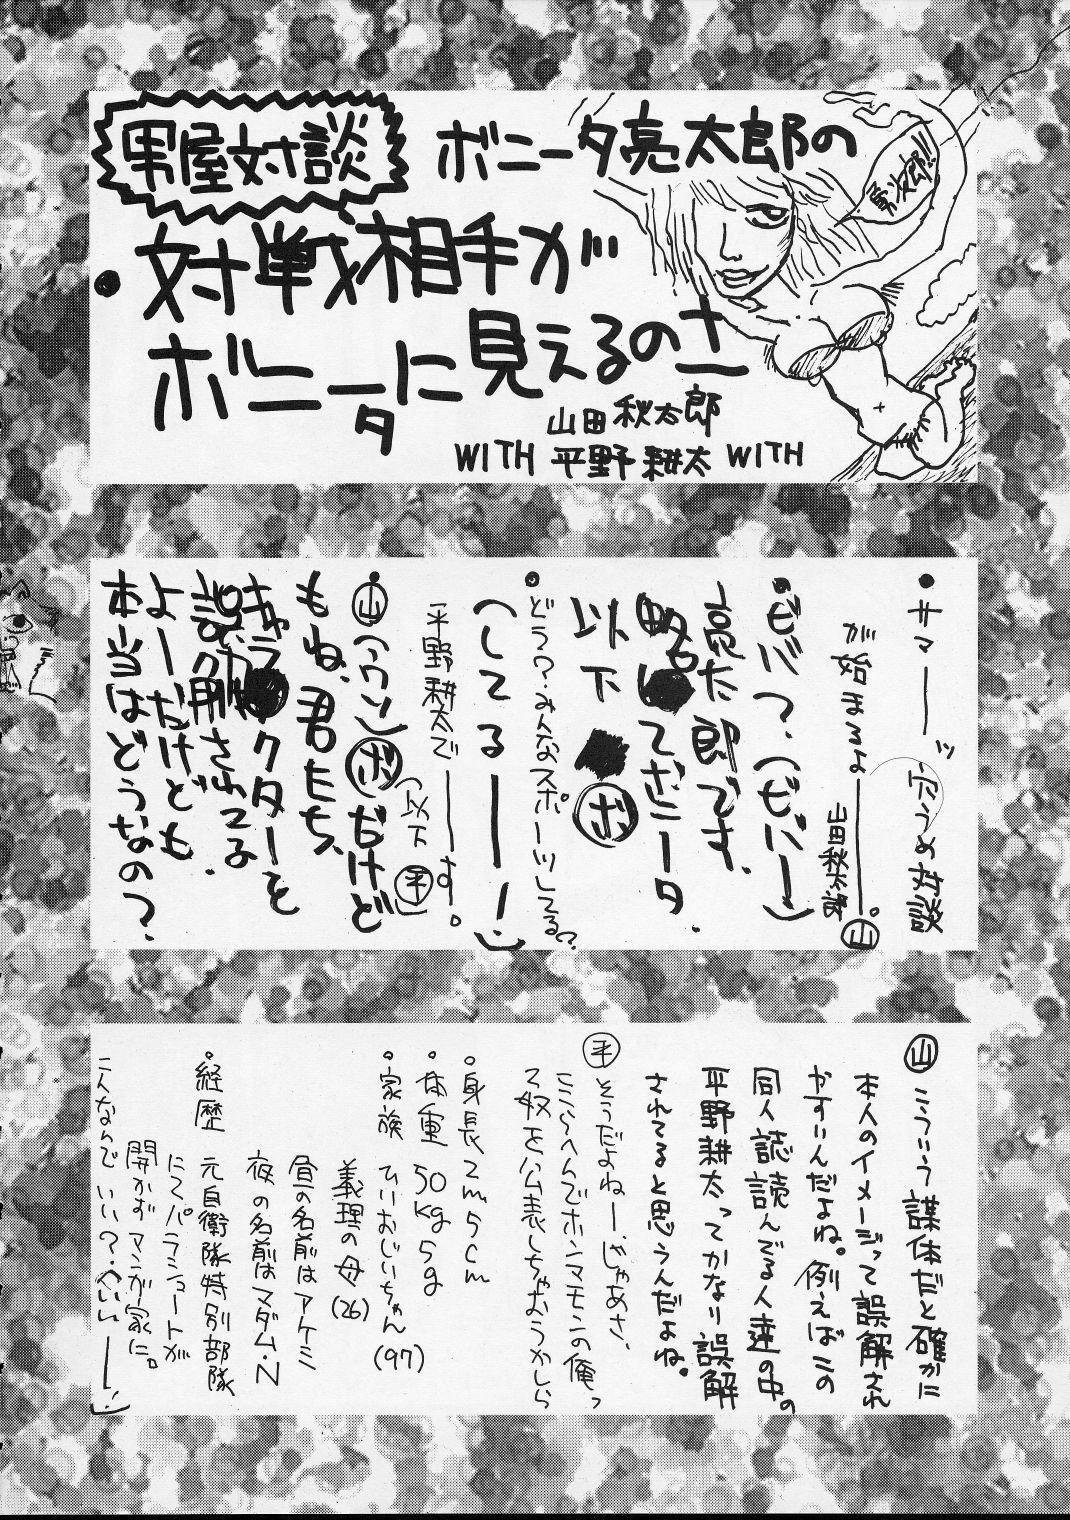 男屋対談
ボニータ亮太郎の
対戦相手が
ボニータに見えるの士
山田秋太郎
WITH 平野耕太 WITH
・サマーーッ 穴うめ対談
が始まるよーー。
山田秋太郎 山
・ビバ?(ビバー)
亮太郎です。
略してボニータ
以下 ボ
・どう?みんなスポーツしてる?
(してるーー!)
平野耕太でーーす。
(以下 平)
山(ウソ)ボだけど
もね、君たち、
キャラクターを
誤解されてる
よーだけども
本当はどうなの?
山 こういう謀体だと確かに
本人のイメージって誤解され
やすいんだよね。例えばこの
同人誌読んでる人達の中の
平野耕太ってかなり誤解
されてると思うんだよね。
平 そうだよねー。じゃあさ、
ここらへんでホンマモンの俺っ
て奴を公表しちゃおうかしら
・身長 2m5cm
・体重 50kg5g
・家族 ひいおじいちゃん(97)
義理の母(26)
昼の名前はアケミ
夜の名前はマダム・N
・経歴 元自衛隊特別部隊
にてパラシュートが
開かずマンガ家に。
こんなんでいい?(いいーー!)